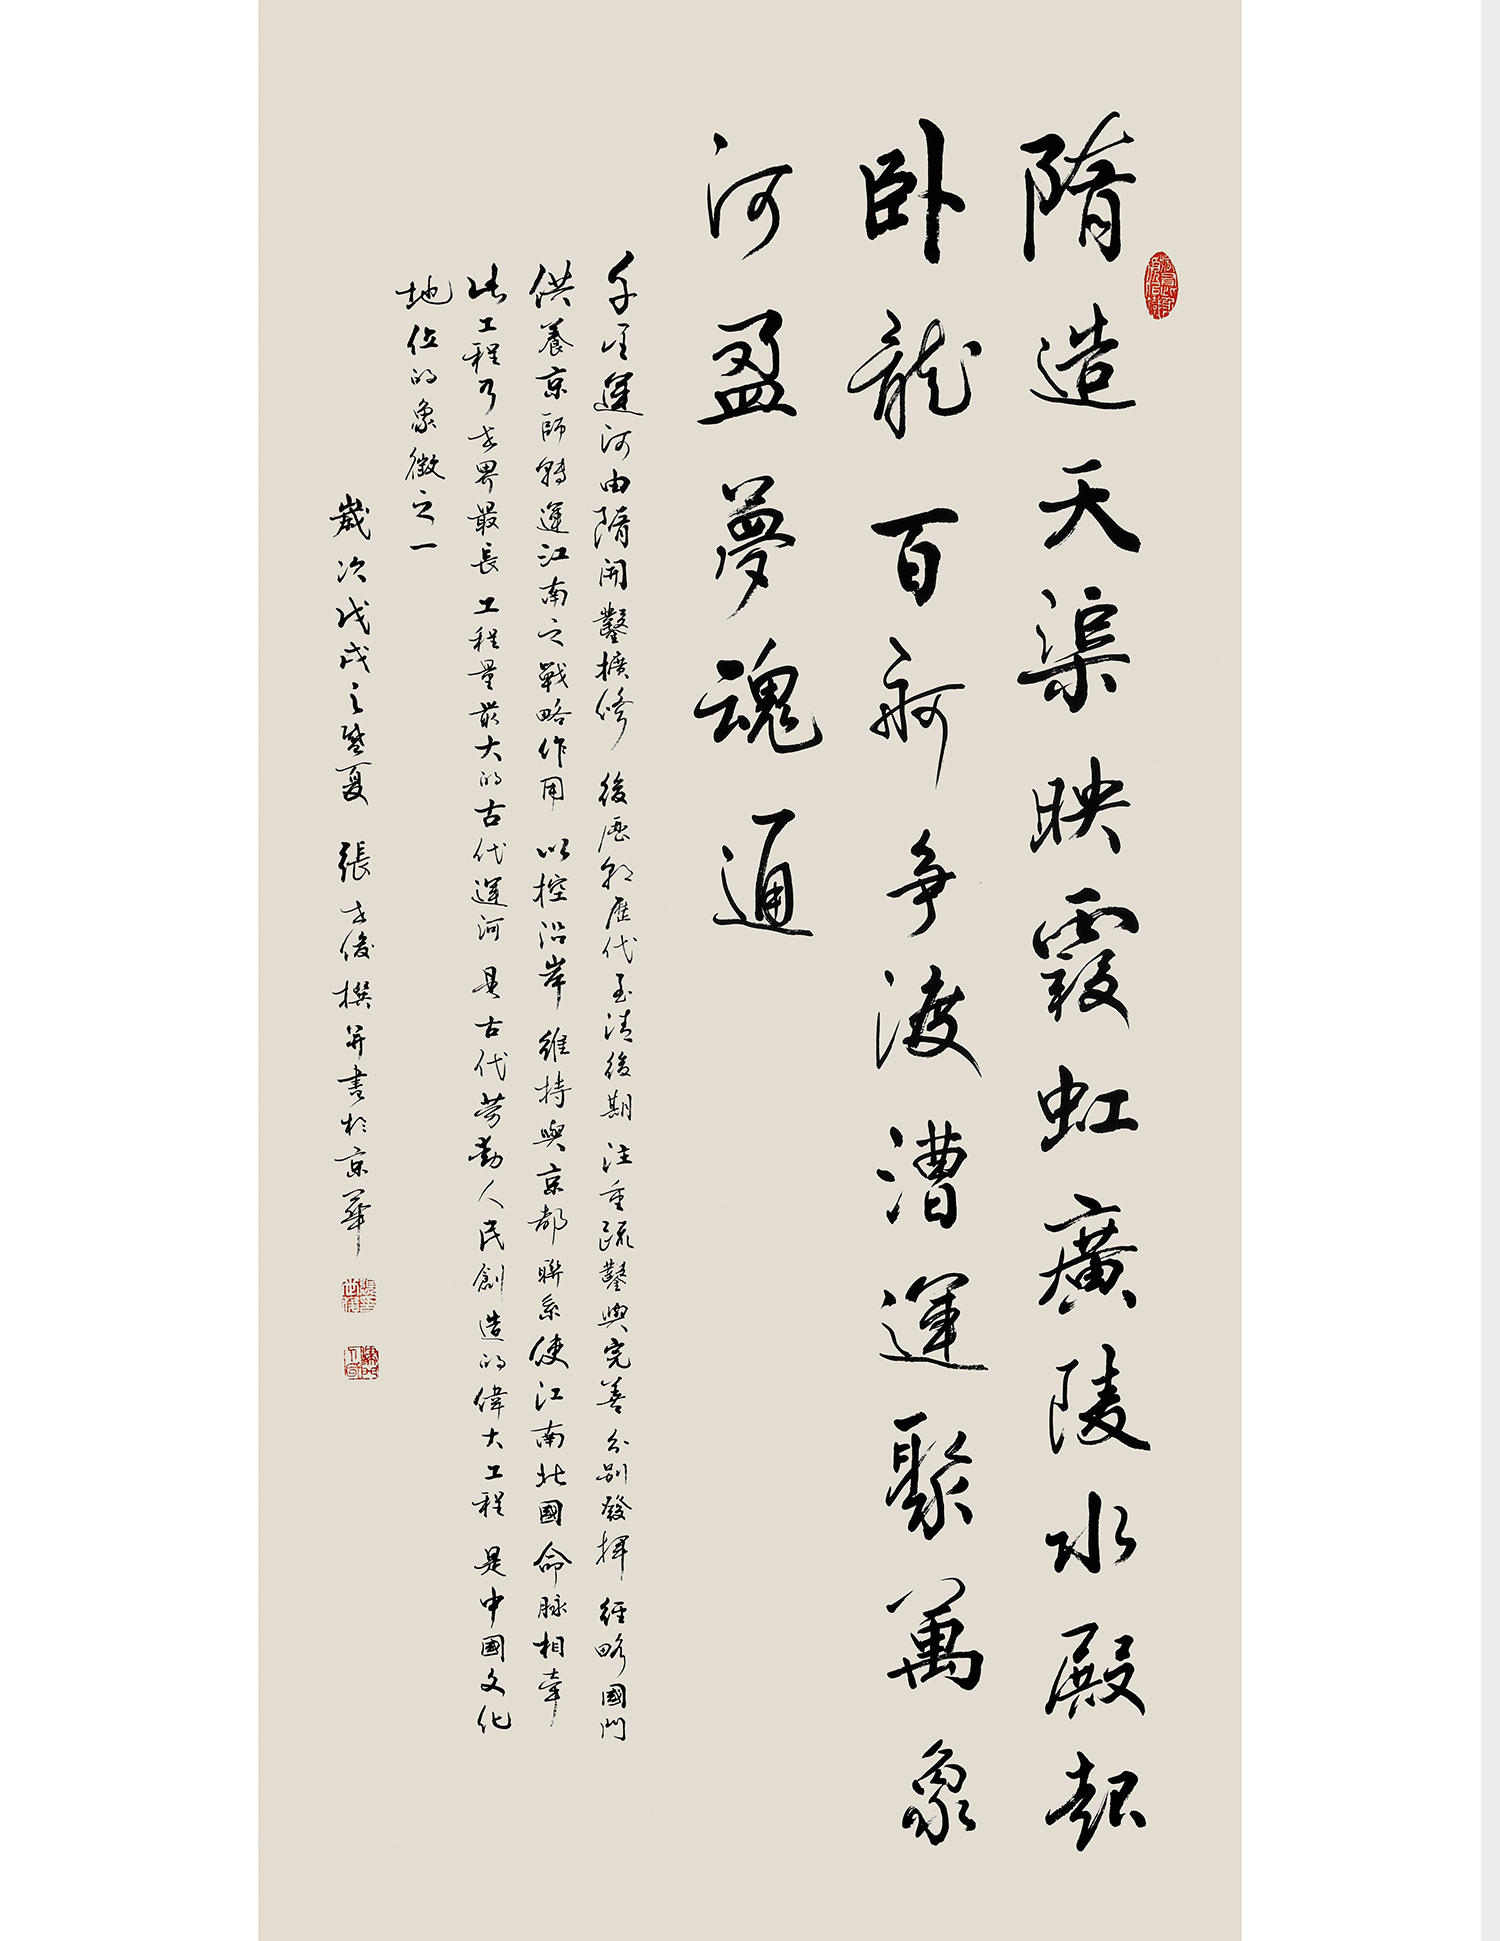 隋造天渠映霞虹廣陵水殿起
卧龍百舸爭渡漕運聚萬象
河盈夢魂通
千里運河由隋開鑿擴修後歷朝歷代至清後期注重疏鑿與完善分別發揮經略國門
供養京師轉運江南之戰略作用以控沿岸維持與京都聯系使江南北國命脉相牽
此工程乃世界最長工程量最大的古代運河是古代勞動人民創造的偉大工程是中國文化
地位的象徵之一
歲次戊戌之盛夏張世俊撰并書於京華